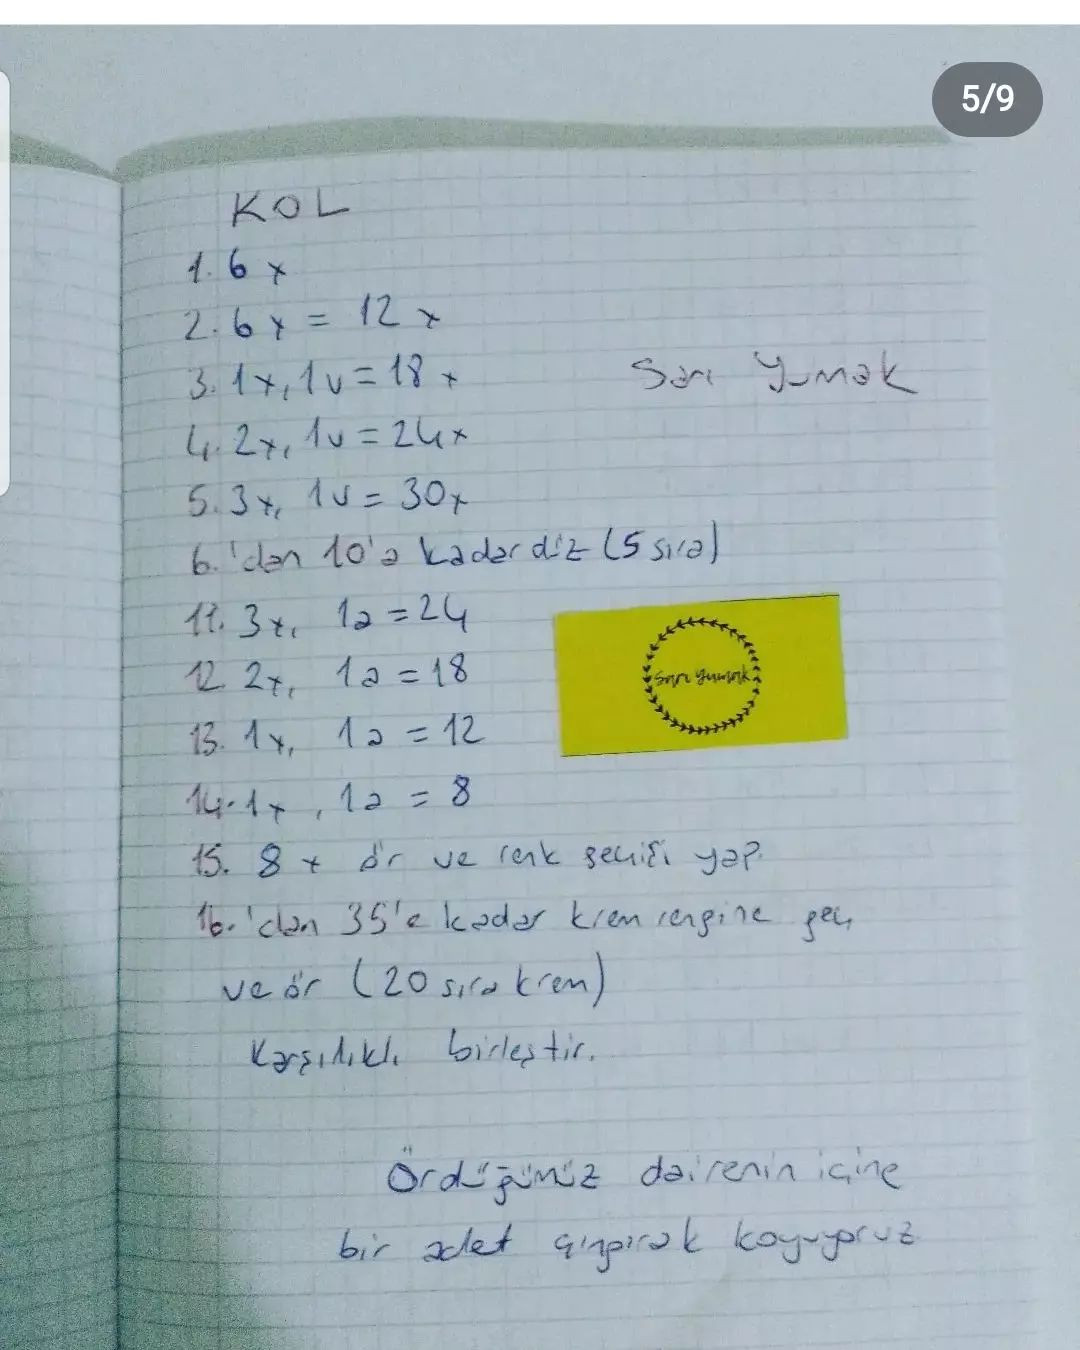 5/9
KOL
1. 6 x
2. 6 x = 12 x
3. 1x, 1v = 18 x
Sarı Yumak
4. 2x, 1v = 24x
5. 3x, 1v = 30x
6.'dan 10'a kadar diz (5 sıra)
11. 3x, 1a = 24
12 2x, 1a = 18
Sarı Yumak
13. 1x, 1a = 12
14. 1x, 1a = 8
15. 8 x ör ve renk geçişi yap.
16.'dan 35'e kadar krem rengine geç
ve ör (20 sıra krem)
Karşılıklı birleştir.
Ördüğümüz dairenin içine
bir adet çıngırak koyuyoruz